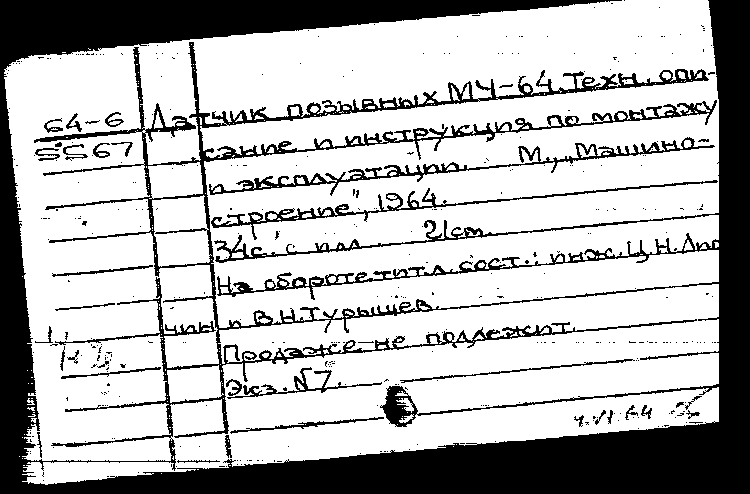 64-6
5567
Датчик позывных МЧ-64. Техн. опи-
сание и инструкция по монтажу
и эксплуатации. М., „Машино-
строение", 1964.
34с. с илл. 21см.
На обороте тит. л. сост.: инж. Ц.Н. Лип
чин и В.Н. Турышев.
Продаже не подлежит.
Экз. N7.
4.VI.64